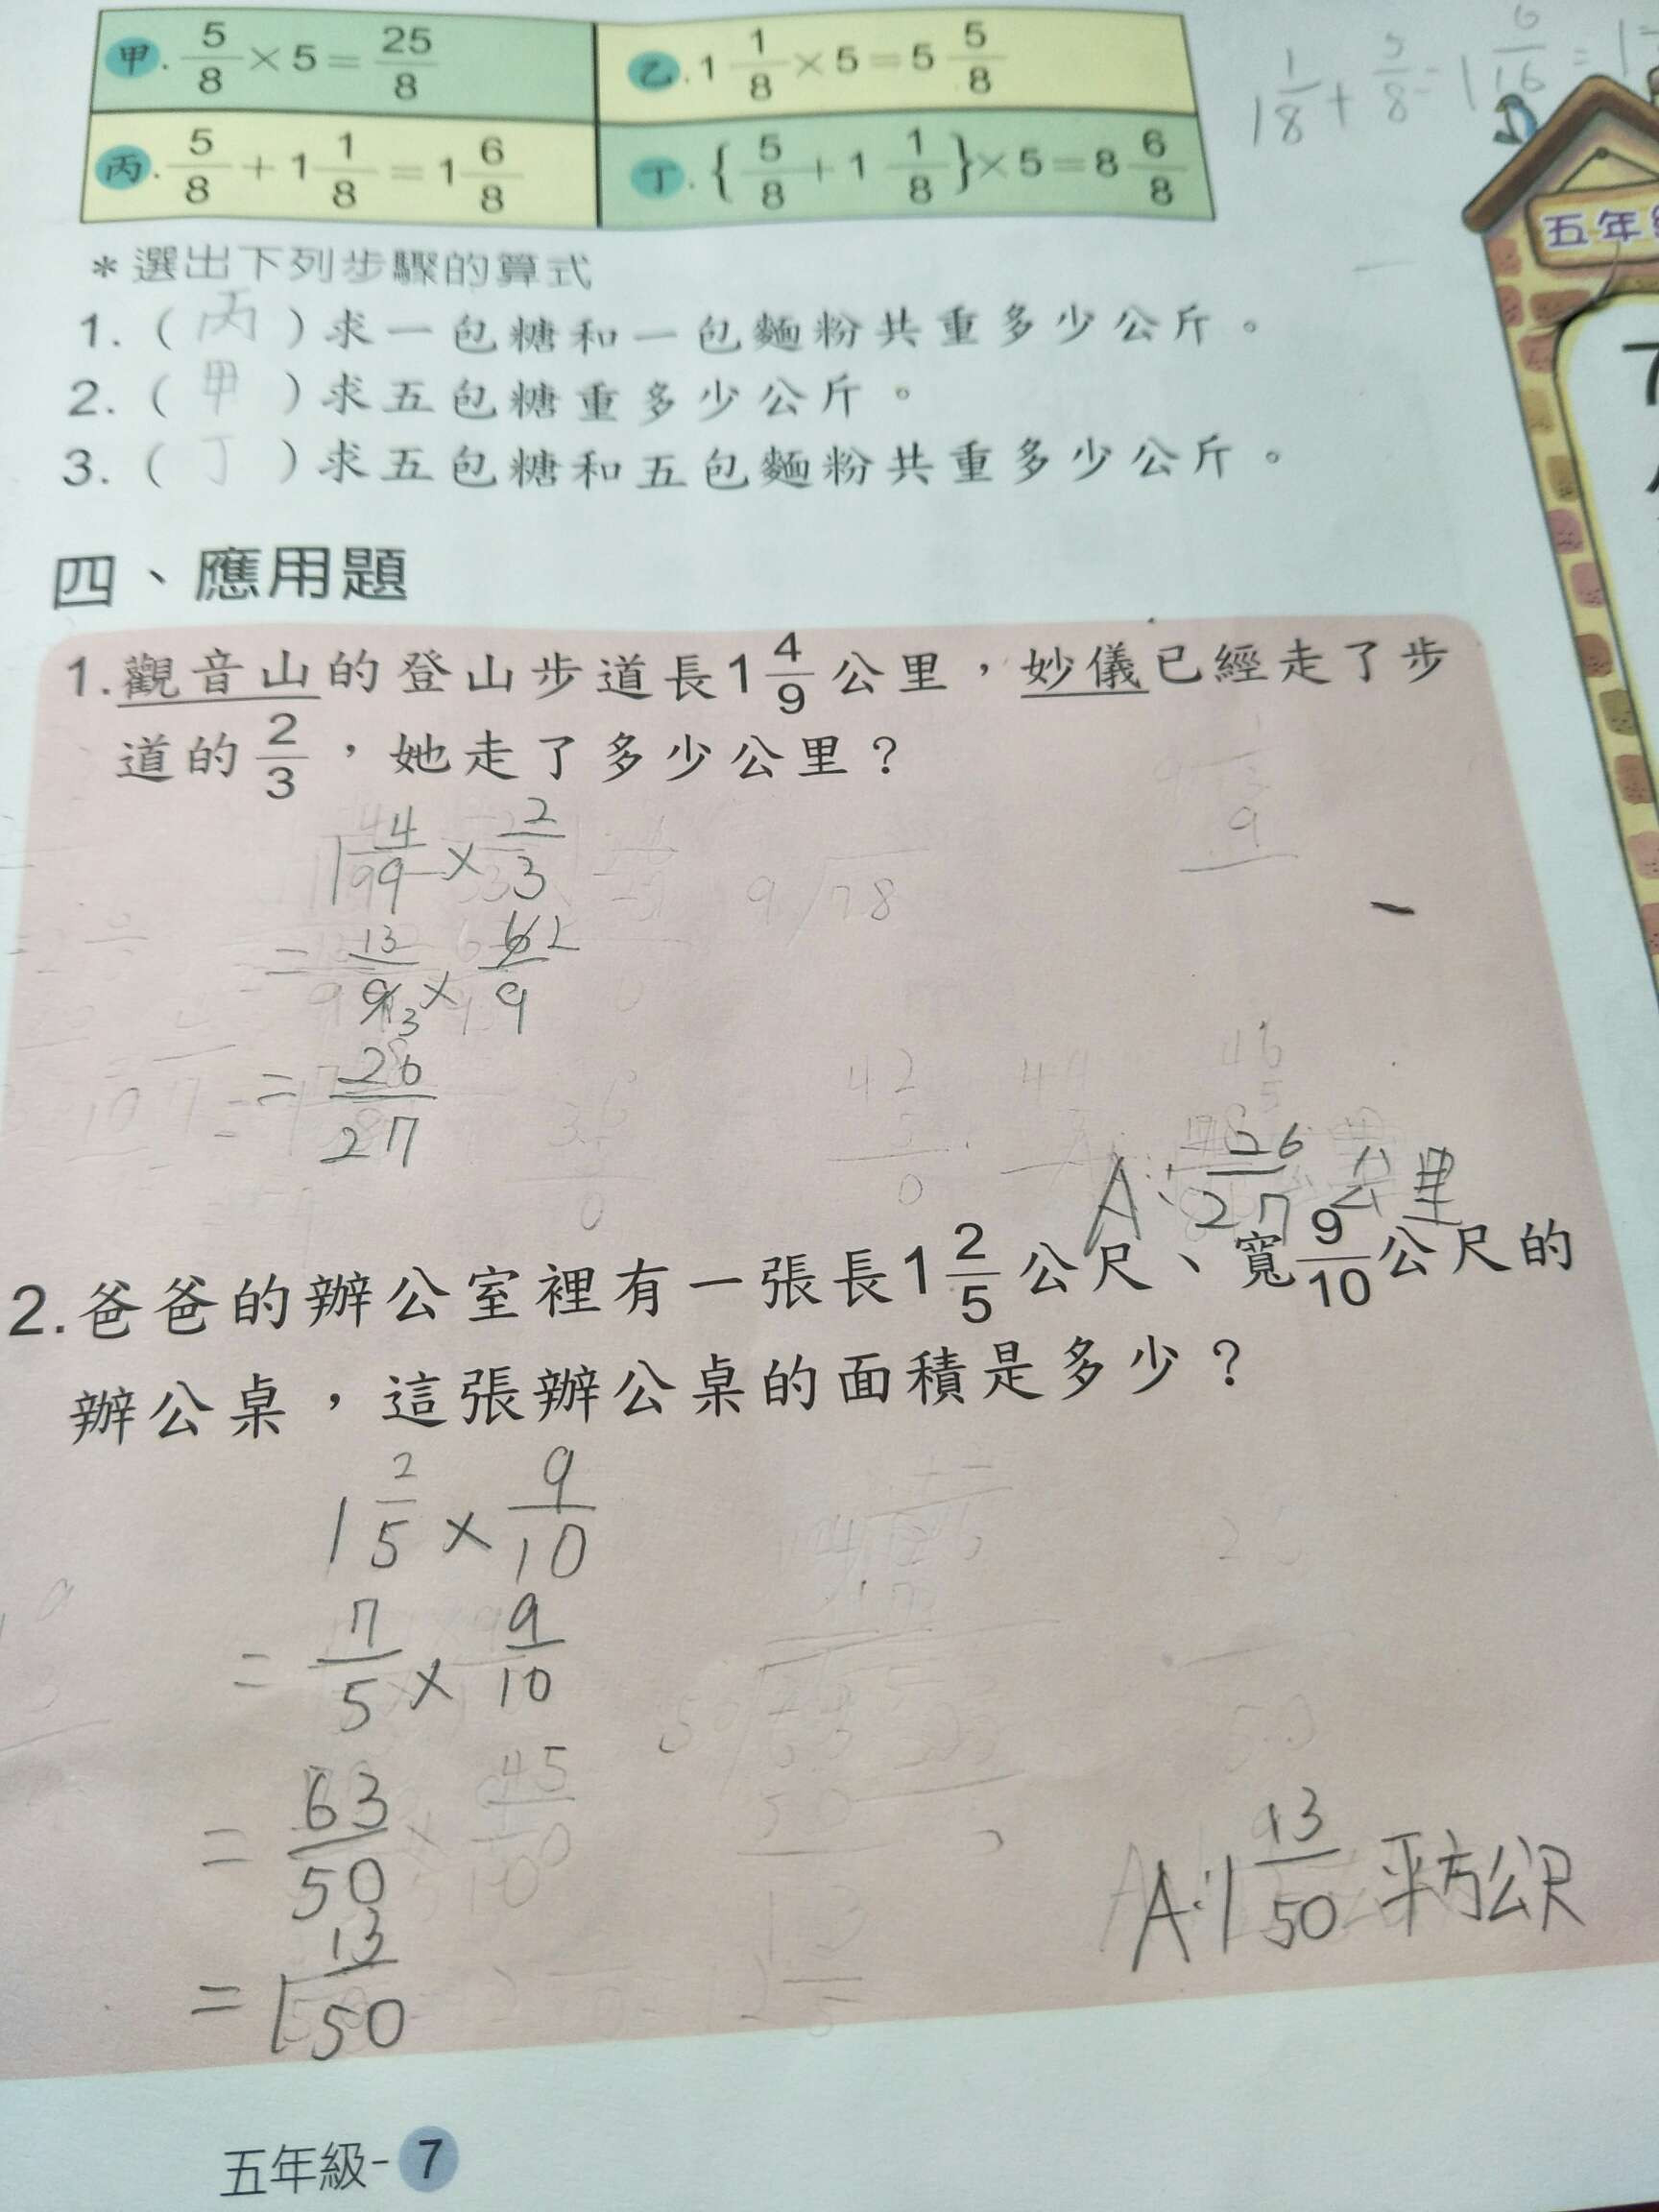 甲. 5/8 × 5 = 25/8
乙. 1 1/8 × 5 = 5 5/8
丙. 5/8 + 1 1/8 = 1 6/8
丁. { 5/8 + 1 1/8 } × 5 = 8 6/8
1 1/8 + 5/8 = 1 6/16 =
五年
*選出下列步驟的算式
1. ( 丙 ) 求一包糖和一包麵粉共重多少公斤。
2. ( 甲 ) 求五包糖重多少公斤。
3. ( 丁 ) 求五包糖和五包麵粉共重多少公斤。
四、應用題
1. 觀音山的登山步道長1 4/9 公里，妙儀已經走了步
道的 2/3 ，她走了多少公里？
1 4/9 × 2/3
= 13/9 3 × 6 2/9
= 26/27
A: 26/27 公里
2. 爸爸的辦公室裡有一張長1 2/5 公尺、寬 9/10 公尺的
辦公桌，這張辦公桌的面積是多少？
1 2/5 × 9/10
= 7/5 × 9/10
= 63/50
= 1 13/50
A: 1 13/50 平方公尺
五年級-7